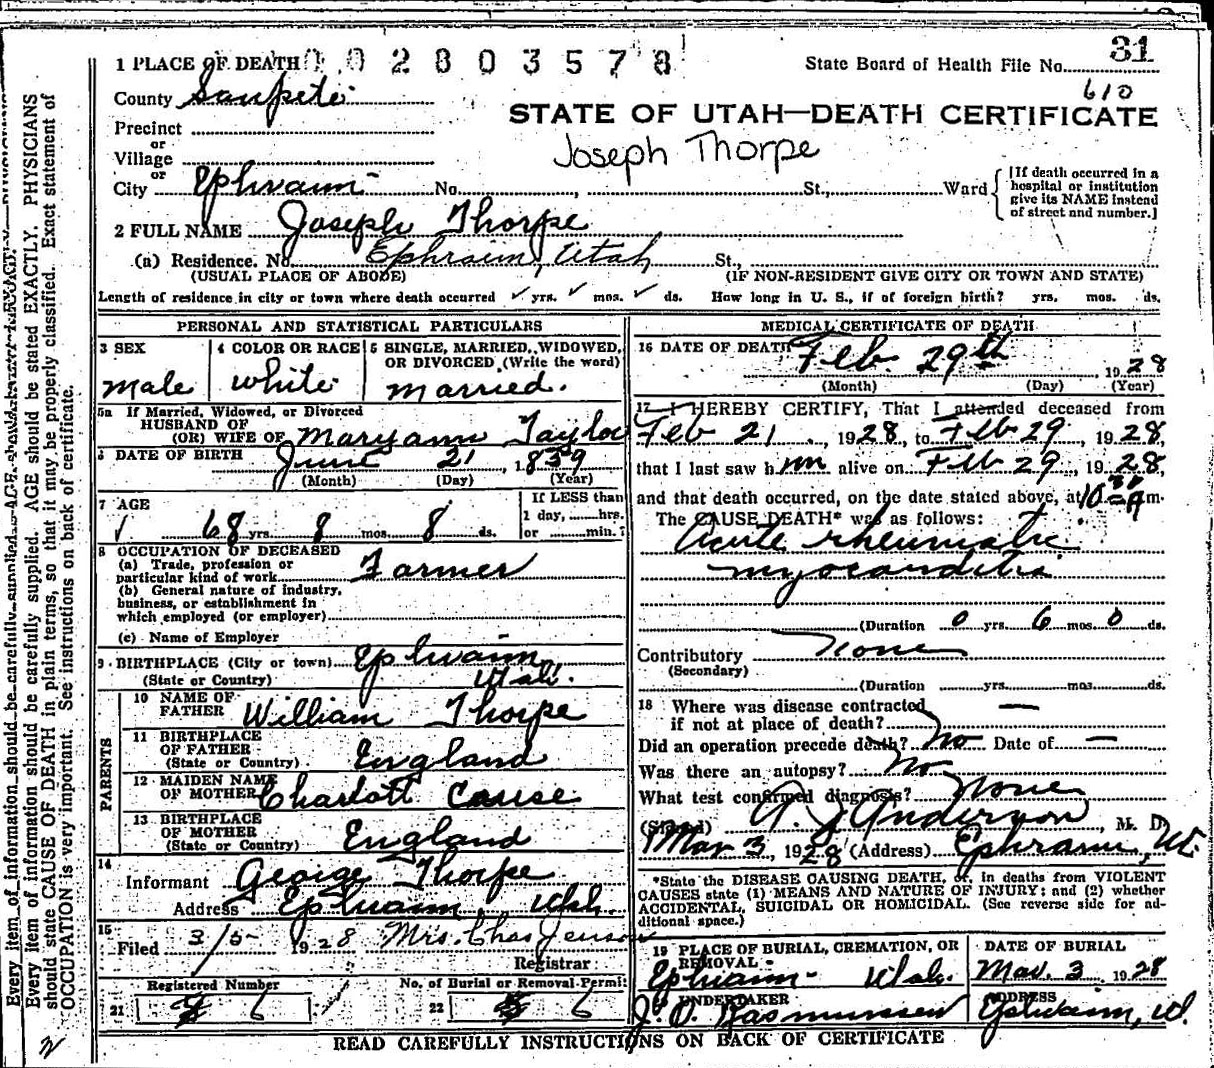 1 PLACE OF DEATH 002803578
State Board of Health File No. 31
610
County Sanpete
STATE OF UTAH—DEATH CERTIFICATE
Precinct
or
Joseph Thorpe
Village
or
City Ephraim No. , St., Ward
[If death occurred in a
hospital or institution
give its NAME instead
of street and number.]
2 FULL NAME Joseph Thorpe
(a) Residence. No. Ephraim, Utah St.,
(USUAL PLACE OF ABODE) (IF NON-RESIDENT GIVE CITY OR TOWN AND STATE)
Length of residence in city or town where death occurred ✓ yrs. ✓ mos. ✓ ds. How long in U. S., if of foreign birth? yrs. mos. ds.
PERSONAL AND STATISTICAL PARTICULARS
3 SEX
male
4 COLOR OR RACE
white
5 SINGLE, MARRIED, WIDOWED,
OR DIVORCED (Write the word)
married.
5a If Married, Widowed, or Divorced
HUSBAND OF
(OR) WIFE OF Maryann Taylor
6 DATE OF BIRTH June 21, 1839
(Month) (Day) (Year)
7 AGE
68 yrs. 8 mos. 8 ds.
If LESS than
1 day, hrs.
or min.?
8 OCCUPATION OF DECEASED
(a) Trade, profession or
particular kind of work Farmer
(b) General nature of industry,
business, or establishment in
which employed (or employer)
(c) Name of Employer
9 BIRTHPLACE (City or town) Ephraim
(State or Country) Utah.
PARENTS
10 NAME OF
FATHER William Thorpe
11 BIRTHPLACE
OF FATHER
(State or Country) England
12 MAIDEN NAME
OF MOTHER Charlott Cause
13 BIRTHPLACE
OF MOTHER
(State or Country) England
14
Informant George Thorpe
Address Ephraim, Utah.
15
Filed 3/5- 1928 Mrs. Chas Jenson
Registrar
Registered Number
21 6
No. of Burial or Removal Permit
22 6
MEDICAL CERTIFICATE OF DEATH
16 DATE OF DEATH Feb. 29th 1928
(Month) (Day) (Year)
17 I HEREBY CERTIFY, That I attended deceased from
Feb 21, 1928, to Feb 29, 1928,
that I last saw him alive on Feb 29, 1928,
and that death occurred, on the date stated above, at 10 30 A m.
The CAUSE DEATH* was as follows:
Acute rheumatic
myocarditis
(Duration 0 yrs. 6 mos. 0 ds.
Contributory None
(Secondary)
(Duration yrs. mos. ds.
18 Where was disease contracted
if not at place of death? —
Did an operation precede death? No Date of —
Was there an autopsy? No
What test confirmed diagnosis? None
(Signed) A. J. Anderson, M. D.
Mar 3, 1928 (Address) Ephraim, Ut.
*State the DISEASE CAUSING DEATH, or, in deaths from VIOLENT
CAUSES state (1) MEANS AND NATURE OF INJURY; and (2) whether
ACCIDENTAL, SUICIDAL OR HOMICIDAL. (See reverse side for ad-
ditional space.)
19 PLACE OF BURIAL, CREMATION, OR
REMOVAL
Ephraim Utah.
DATE OF BURIAL
Mar. 3 1928
UNDERTAKER
J. O. Rasmussen
ADDRESS
Ephraim, Ut.
READ CAREFULLY INSTRUCTIONS ON BACK OF CERTIFICATE
Every item of information should be carefully supplied. AGE should be stated EXACTLY. PHYSICIANS
should state CAUSE OF DEATH in plain terms, so that it may be properly classified. Exact statement of
OCCUPATION is very important. See instructions on back of certificate.